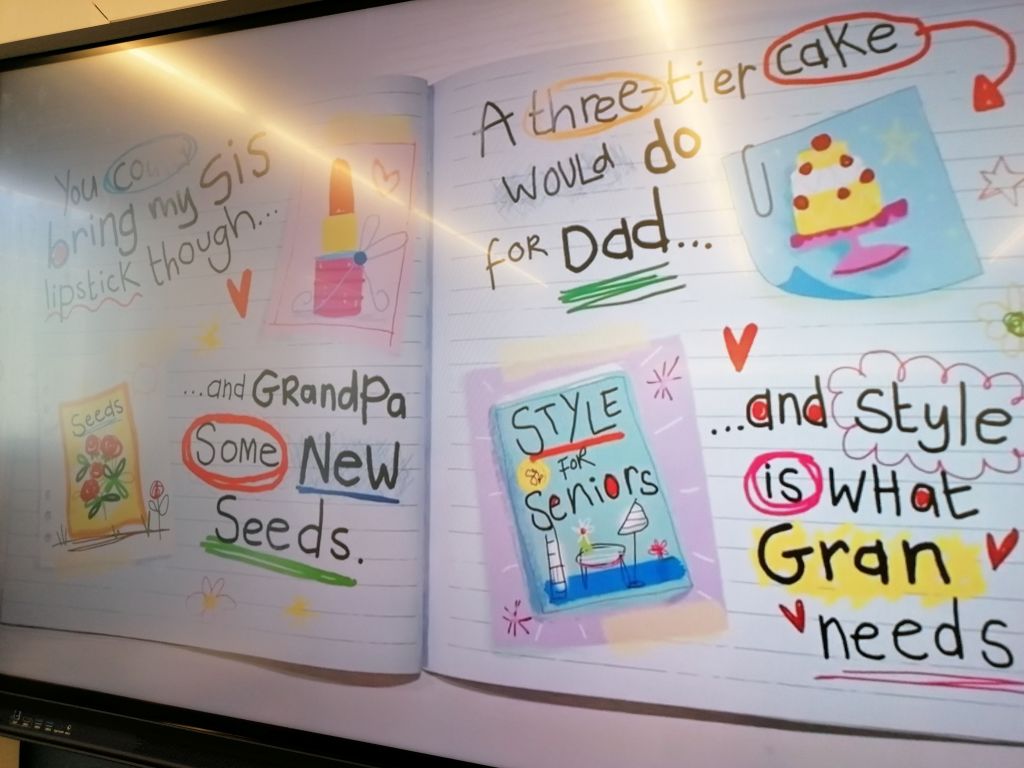 You could
bring my sis
lipstick though...
Seeds
...and Grandpa
Some New
Seeds.
A three-tier cake
would do
for Dad...
STYLE
FOR
Seniors
...and Style
is what
Gran
needs